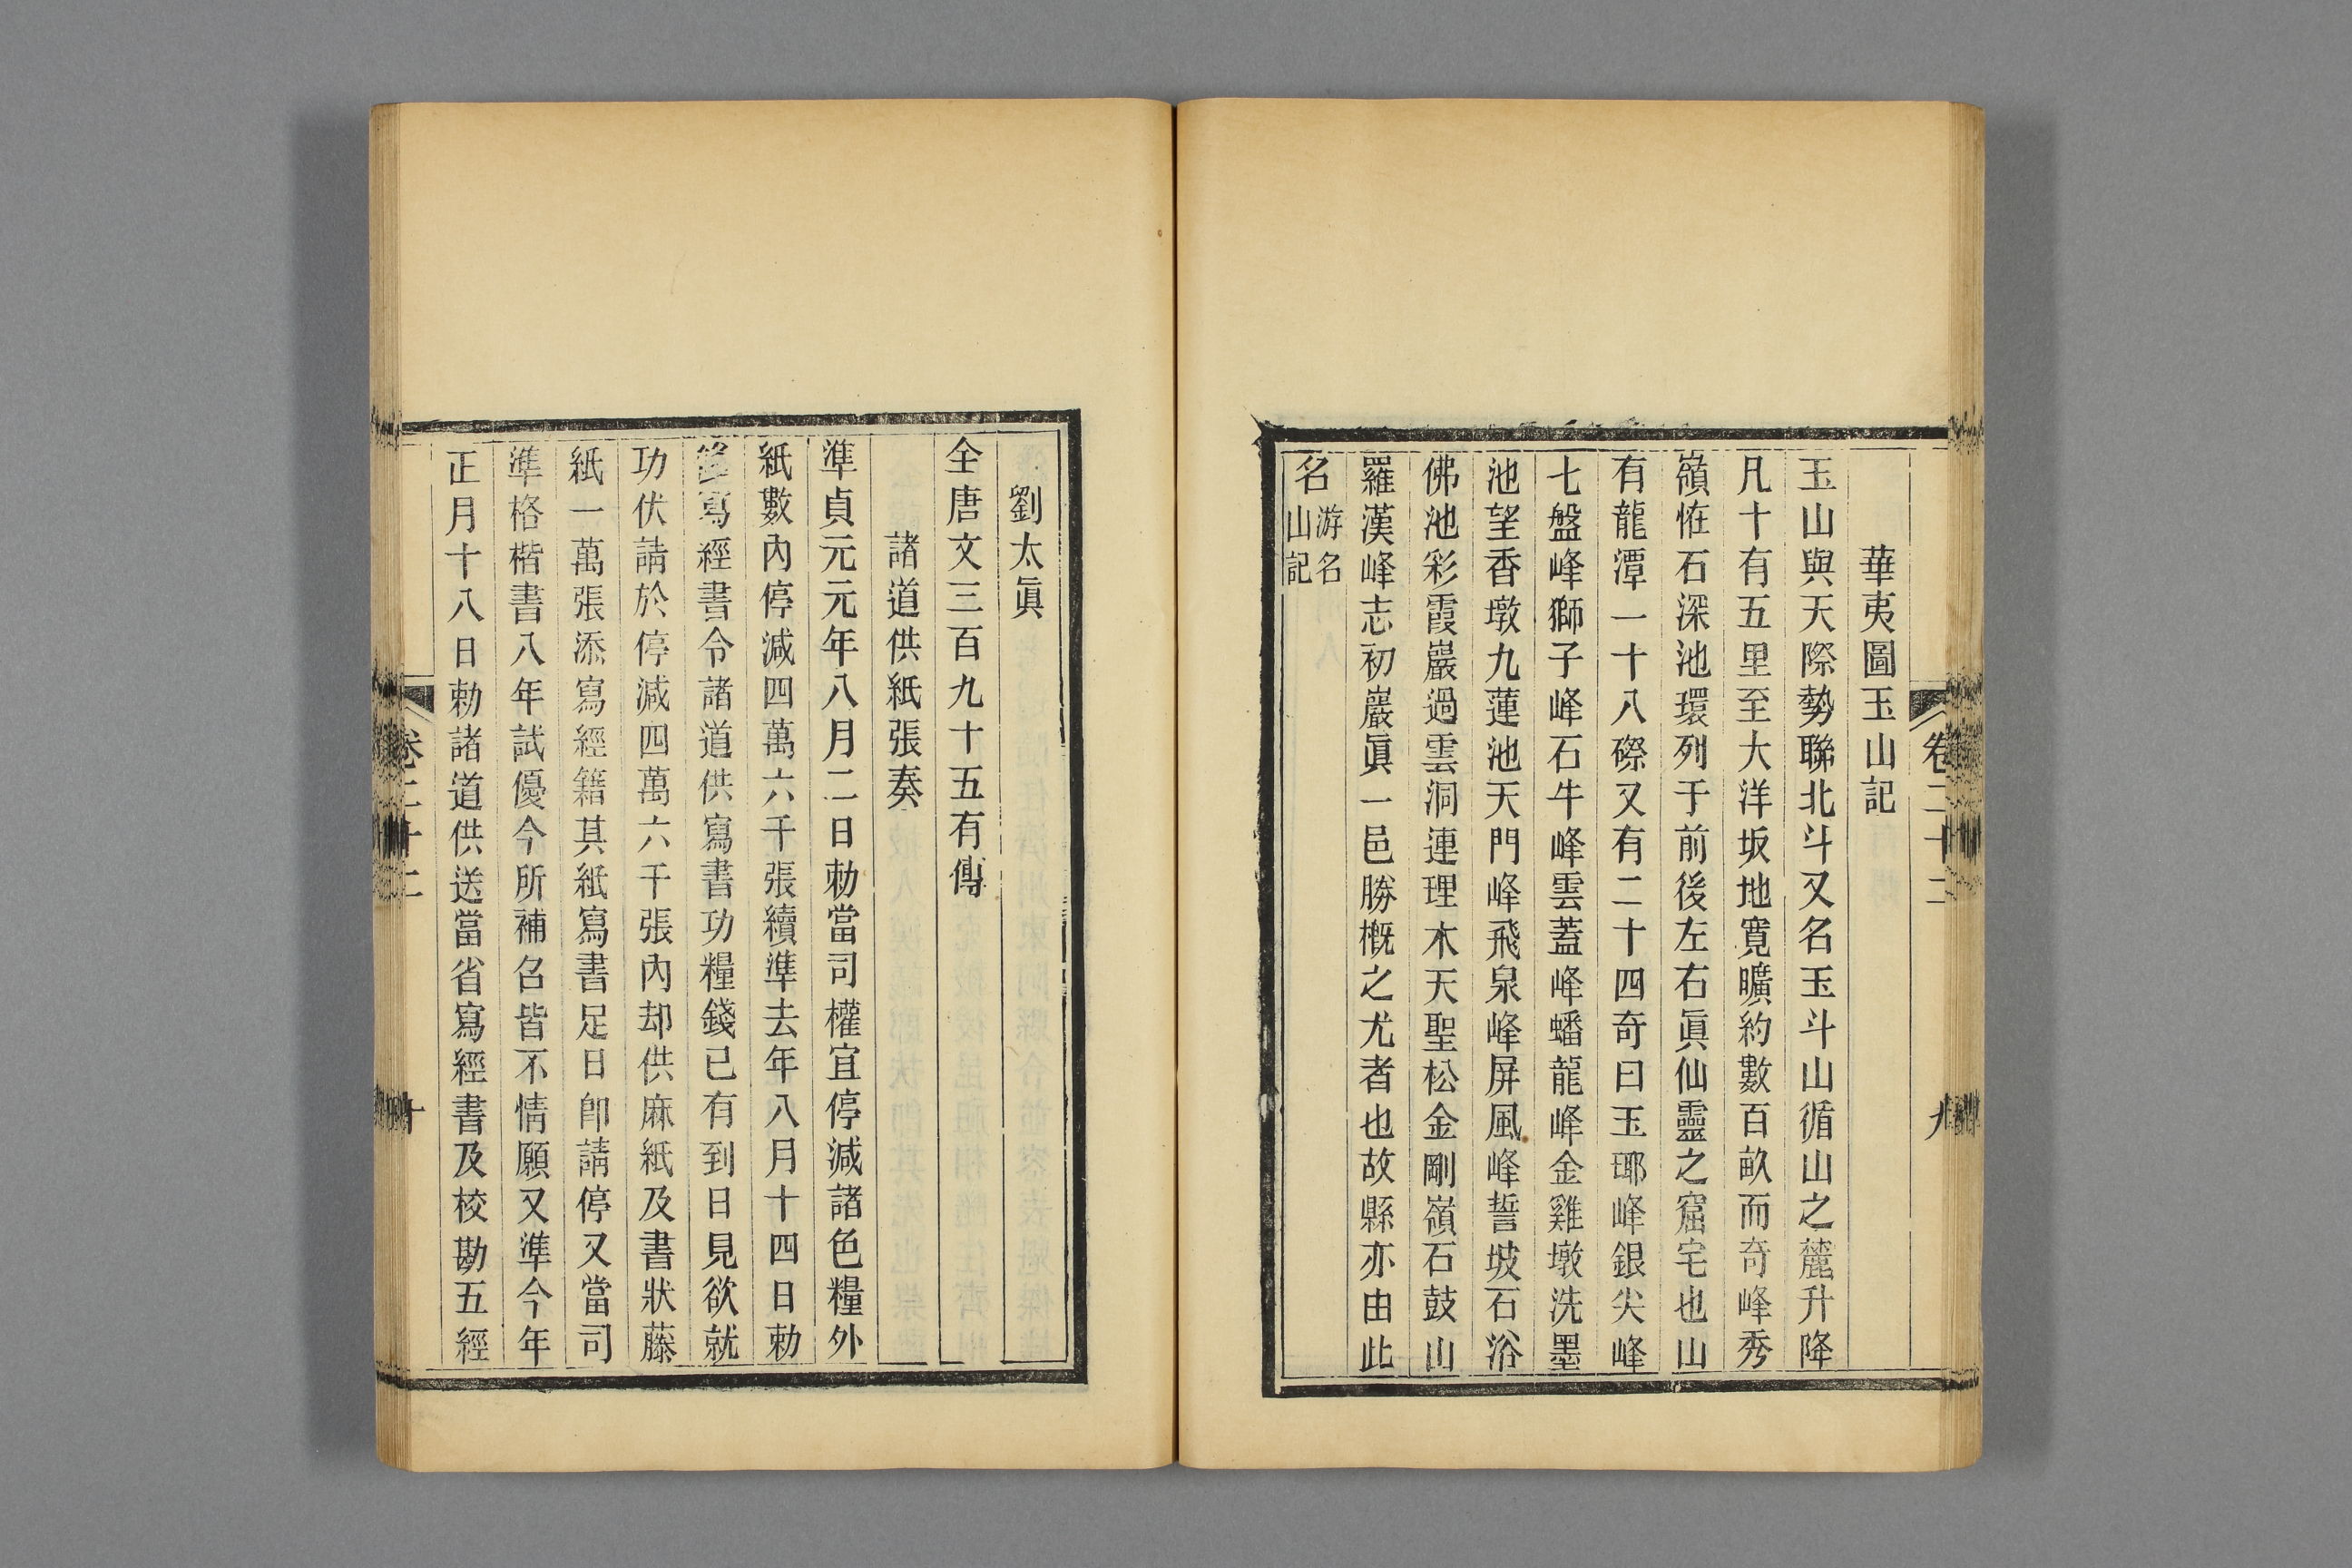 卷二十二
九
華夷圖玉山記
玉山與天際勢聯北斗又名玉斗山循山之麓升降
凡十有五里至大洋坂地寬曠約數百畝而奇峰秀
嶺恠石深池環列于前後左右眞仙靈之窟宅也山
有龍潭一十八磜又有二十四奇曰玉瑘峰銀尖峰
七盤峰獅子峰石牛峰雲蓋峰蟠龍峰金雞墩洗墨
池望香墩九蓮池天門峰飛泉峰屏風峰誓坡石浴
佛池彩霞巖過雲洞連理木天聖松金剛嶺石鼓山
羅漢峰志初巖眞一邑勝槪之尤者也故縣亦由此
名游名山記
劉太眞
全唐文三百九十五有傳
諸道供紙張奏
準貞元元年八月二日勅當司權宜停減諸色糧外
紙數內停減四萬六千張續準去年八月十四日勅
修寫經書令諸道供寫書功糧錢已有到日見欲就
功伏請於停減四萬六千張內却供麻紙及書狀藤
紙一萬張添寫經籍其紙寫書足日卽請停又當司
準格楷書八年試優今所補召皆不情願又準今年
正月十八日勅諸道供送當省寫經書及校勘五經
卷二十二
十